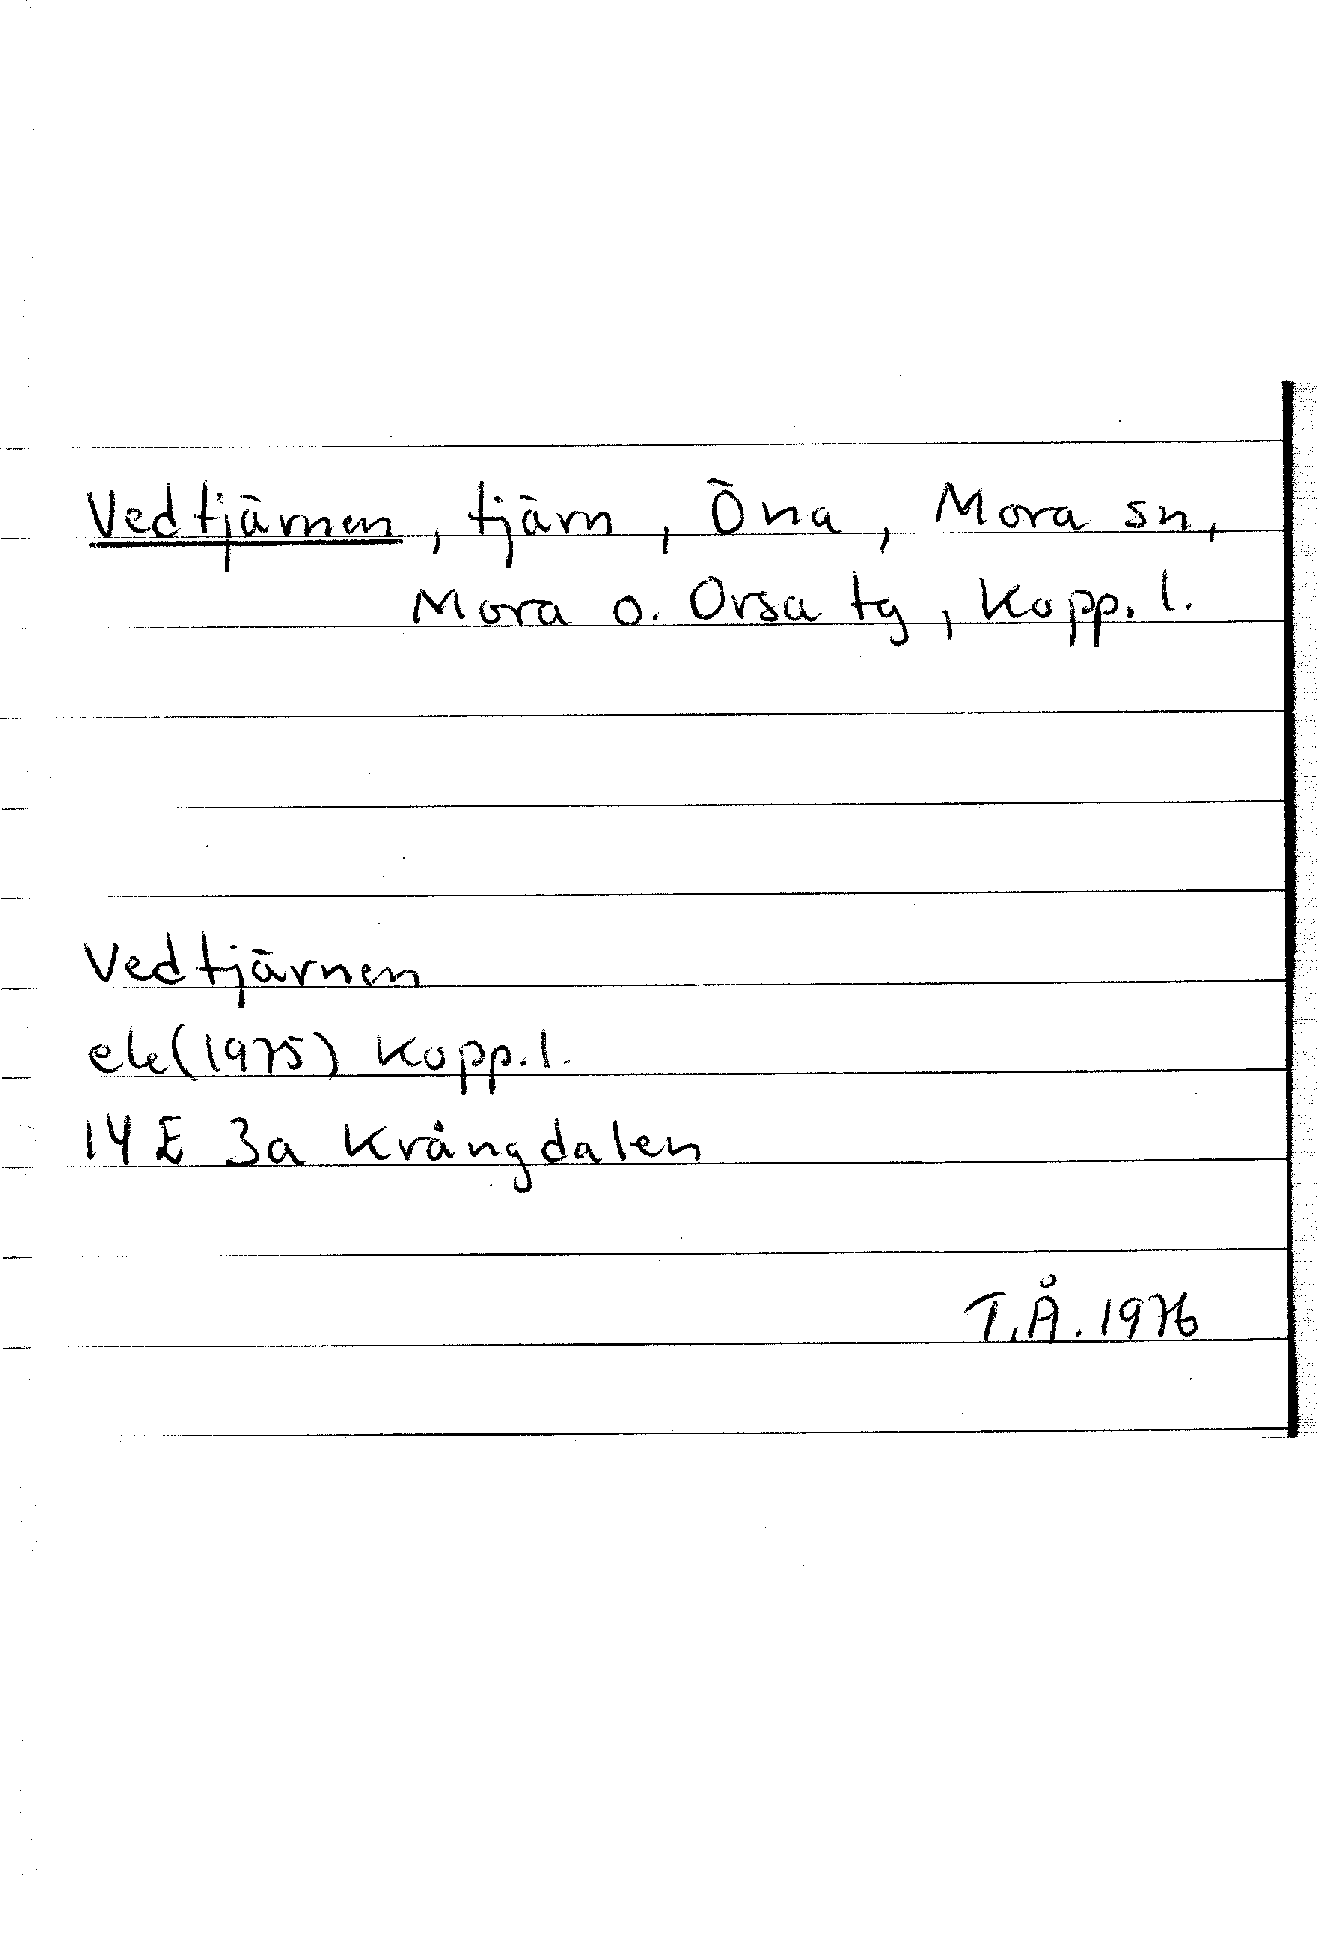 Vedtjärnen, tjärn, Öna, Mora sn,
Mora o. Orsa tg, Kopp. l.
Vedtjärnen
ek(1975) Kopp.l.
14E 3a Krångdalen
T.Å.1976